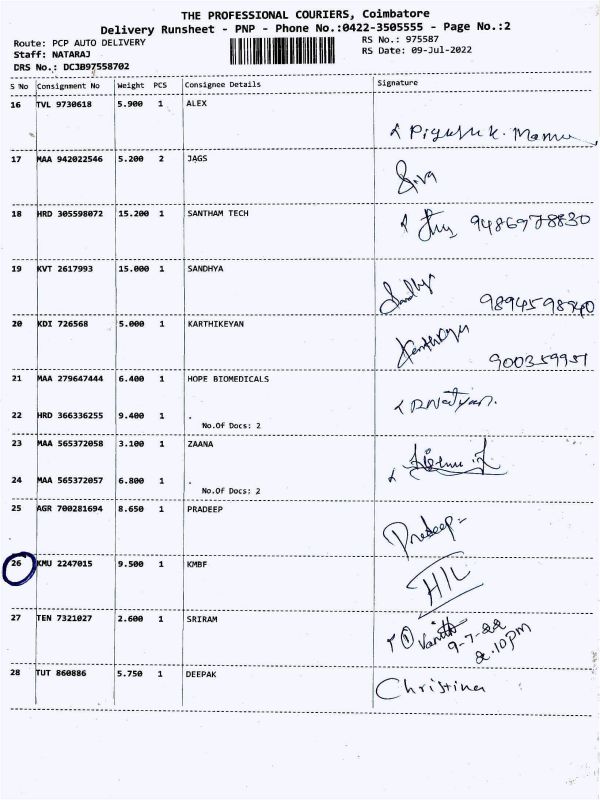 THE PROFESSIONAL COURIERS, Coimbatore
Delivery Runsheet - PNP - Phone No.:0422-3505555 - Page No.:2
Route: PCP AUTO DELIVERY RS No.: 975587
Staff: NATARAJ RS Date: 09-Jul-2022
DRS No.: DCJB97558702
S No Consignment No Weight PCS Consignee Details Signature
16 TVL 9730618 5.900 1 ALEX
Piyush k.
17 MAA 942022546 5.200 2 JAGS
Siva
18 HRD 305598072 15.200 1 SANTHAM TECH
9486978830
19 KVT 2617993 15.000 1 SANDHYA
Sandhya
9894598940
20 KDI 726568 5.000 1 KARTHIKEYAN
Karthikeyan
900359951
21 MAA 279647444 6.400 1 HOPE BIOMEDICALS
22 HRD 366336255 9.400 1 .
No.Of Docs: 2
23 MAA 565372058 3.100 1 ZAANA
24 MAA 565372057 6.800 1 .
No.Of Docs: 2
25 AGR 700281694 8.650 1 PRADEEP
Pradeep
26 KMU 2247015 9.500 1 KMBF
H/L
27 TEN 7321027 2.600 1 SRIRAM
9-7-22
2.10pm
28 TUT 860886 5.750 1 DEEPAK
Christina